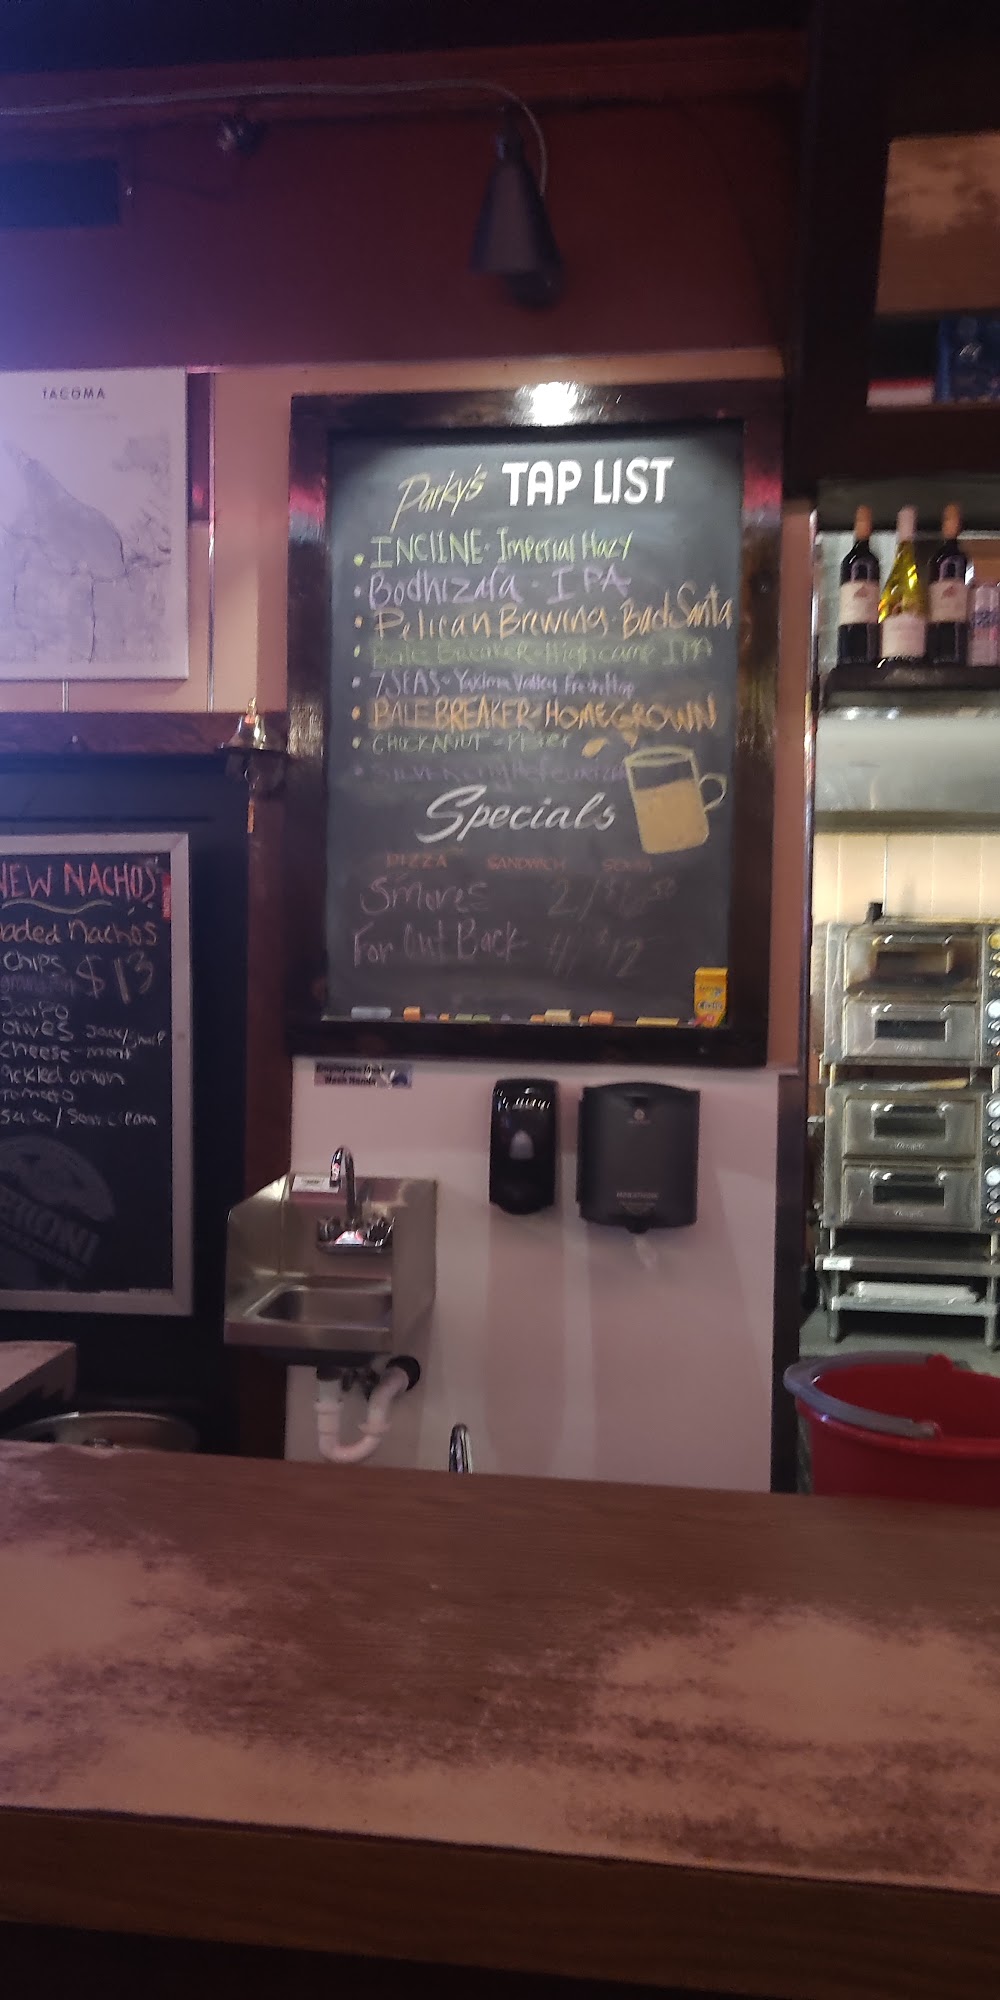 TACOMA
Parky's TAP LIST
• INCLINE - Imperial Hazy
• Bodhizafa - IPA
• Pelican Brewing - Bad Santa
• Bale Breaker - Highcamp IPA
• 7 SEAS - Yakima Valley Fresh Hop
• BALEBREAKER - HOMEGROWN
• CHUCKANUT -
• SILVER City
Specials
PIZZA SANDWICH
S'mores 2/$6.50
For Out Back 4/$12
NEW NACHOS
Nachos
Chips $13
olives
cheese
onion
Tomato
Salsa / Sour cream
Employees Must
Wash Hands